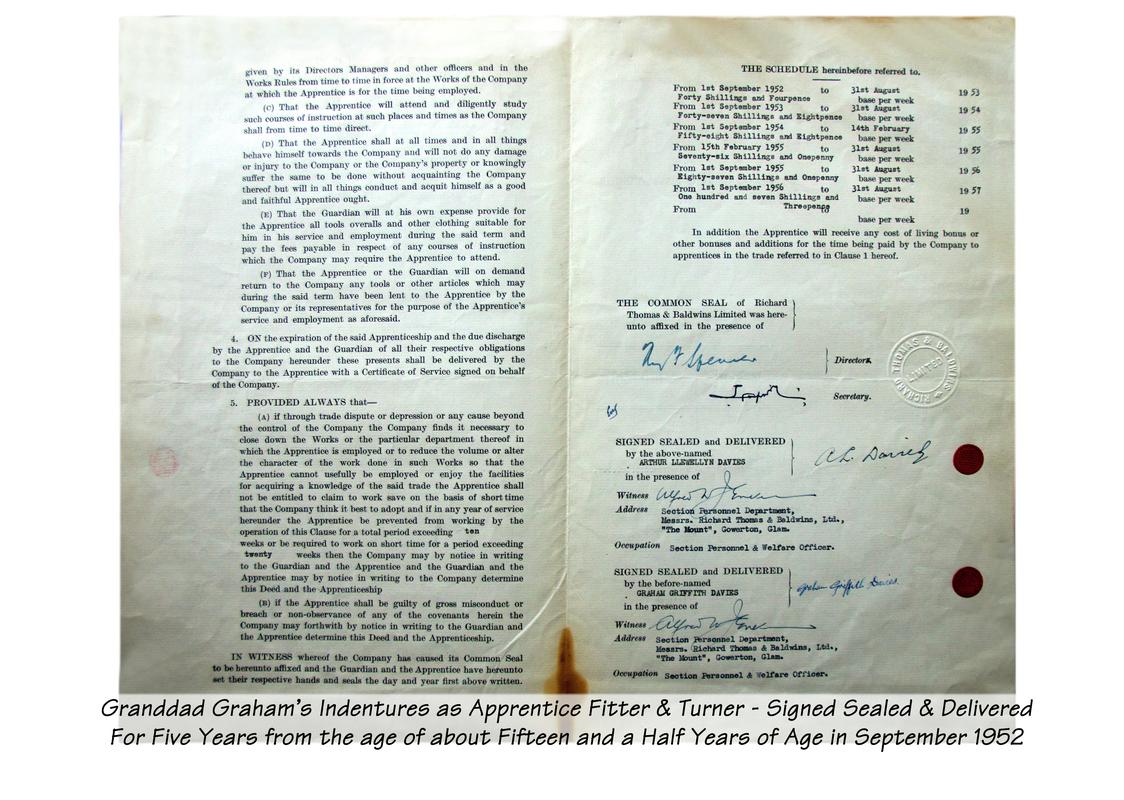 given by its Directors Managers and other officers and in the
Works Rules from time to time in force at the Works of the Company
at which the Apprentice is for the time being employed.
(C) That the Apprentice will attend and diligently study
such courses of instruction at such places and times as the Company
shall from time to time direct.
(D) That the Apprentice shall at all times and in all things
behave himself towards the Company and will not do any damage
or injury to the Company or the Company's property or knowingly
suffer the same to be done without acquainting the Company
thereof but will in all things conduct and acquit himself as a good
and faithful Apprentice ought.
(E) That the Guardian will at his own expense provide for
the Apprentice all tools overalls and other clothing suitable for
him in his service and employment during the said term and
pay the fees payable in respect of any courses of instruction
which the Company may require the Apprentice to attend.
(F) That the Apprentice or the Guardian will on demand
return to the Company any tools or other articles which may
during the said term have been lent to the Apprentice by the
Company or its representatives for the purpose of the Apprentice's
service and employment as aforesaid.
4. ON the expiration of the said Apprenticeship and the due discharge
by the Apprentice and the Guardian of all their respective obligations
to the Company hereunder these presents shall be delivered by the
Company to the Apprentice with a Certificate of Service signed on behalf
of the Company.
5. PROVIDED ALWAYS that—
(A) if through trade dispute or depression or any cause beyond
the control of the Company the Company finds it necessary to
close down the Works or the particular department thereof in
which the Apprentice is employed or to reduce the volume or alter
the character of the work done in such Works so that the
Apprentice cannot usefully be employed or enjoy the facilities
for acquiring a knowledge of the said trade the Apprentice shall
not be entitled to claim to work save on the basis of short time
that the Company think it best to adopt and if in any year of service
hereunder the Apprentice be prevented from working by the
operation of this Clause for a total period exceeding ten
weeks or be required to work on short time for a period exceeding
twenty weeks then the Company may by notice in writing
to the Guardian and the Apprentice and the Guardian and the
Apprentice may by notice in writing to the Company determine
this Deed and the Apprenticeship
(B) if the Apprentice shall be guilty of gross misconduct or
breach or non-observance of any of the covenants herein the
Company may forthwith by notice in writing to the Guardian and
the Apprentice determine this Deed and the Apprenticeship.
IN WITNESS whereof the Company has caused its Common Seal
to be hereunto affixed and the Guardian and the Apprentice have hereunto
set their respective hands and seals the day and year first above written.
THE SCHEDULE hereinbefore referred to.
From 1st September 1952 to 31st August 19 53
Forty Shillings and Fourpence base per week
From 1st September 1953 to 31st August 19 54
Forty-seven Shillings and Eightpence base per week
From 1st September 1954 to 14th February 19 55
Fifty-eight Shillings and Eightpence base per week
From 15th February 1955 to 31st August 19 55
Seventy-six Shillings and Onepenny base per week
From 1st September 1955 to 31st August 19 56
Eighty-seven Shillings and Onepenny base per week
From 1st September 1956 to 31st August 19 57
One hundred and seven Shillings and base per week
Threepence
From to 19
base per week
In addition the Apprentice will receive any cost of living bonus or
other bonuses and additions for the time being paid by the Company to
apprentices in the trade referred to in Clause 1 hereof.
THE COMMON SEAL of Richard
Thomas & Baldwins Limited was here-
unto affixed in the presence of
Spencer
Directors.
RICHARD THOMAS & BALDWINS LIMITED
Secretary.
SIGNED SEALED and DELIVERED
by the above-named
ARTHUR LLEWELLYN DAVIES
in the presence of
A.L. Davies
Witness Alfred W J
Address Section Personnel Department,
Messrs. Richard Thomas & Baldwins, Ltd.,
"The Mount", Gowerton, Glam.
Occupation Section Personnel & Welfare Officer.
SIGNED SEALED and DELIVERED
by the before-named
GRAHAM GRIFFITH DAVIES
in the presence of
Graham Griffith Davies
Witness Alfred W J
Address Section Personnel Department,
Messrs. Richard Thomas & Baldwins, Ltd.,
"The Mount", Gowerton, Glam.
Occupation Section Personnel & Welfare Officer.
Granddad Graham's Indentures as Apprentice Fitter & Turner - Signed Sealed & Delivered
For Five Years from the age of about Fifteen and a Half Years of Age in September 1952